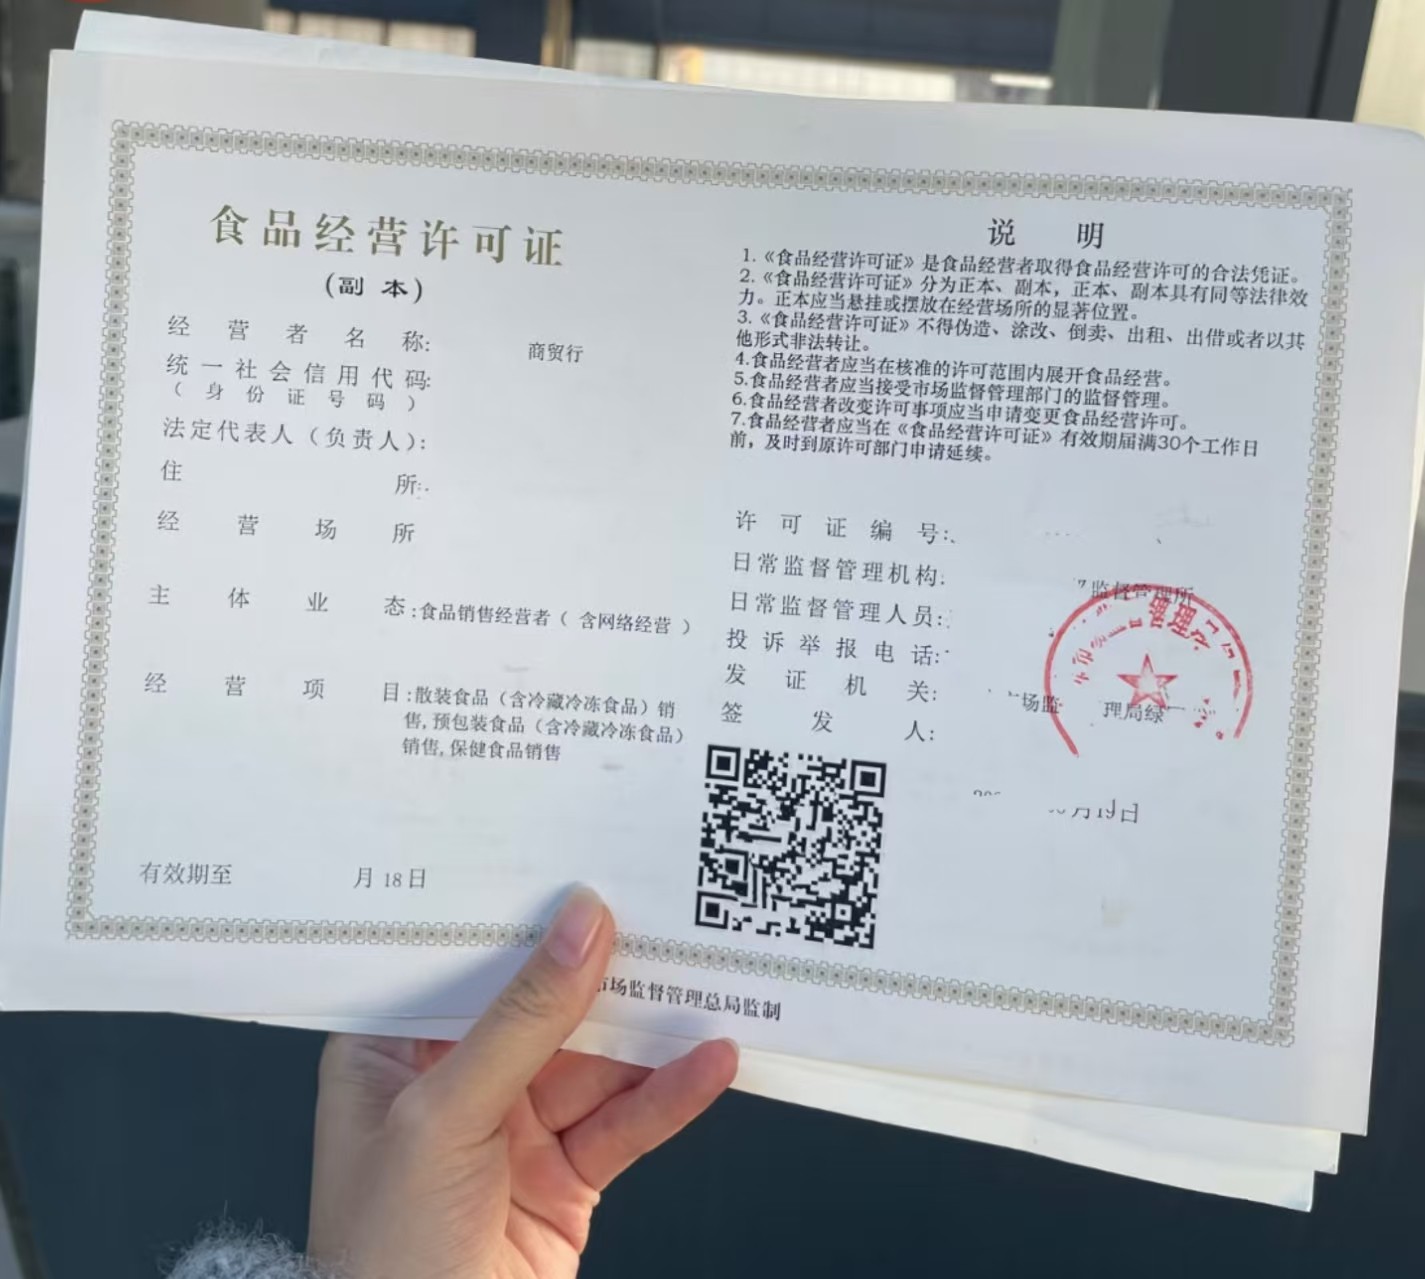 食品经营许可证
(副 本)
经营者名称: 商贸行
统一社会信用代码:
(身份证号码)
法定代表人(负责人):
住所:
经营场所
主体业态:食品销售经营者(含网络经营)
经营项目:散装食品(含冷藏冷冻食品)销
售,预包装食品(含冷藏冷冻食品)
销售,保健食品销售
有效期至 月18日
说 明
1.《食品经营许可证》是食品经营者取得食品经营许可的合法凭证。
2.《食品经营许可证》分为正本、副本,正本、副本具有同等法律效
力。正本应当悬挂或摆放在经营场所的显著位置。
3.《食品经营许可证》不得伪造、涂改、倒卖、出租、出借或者以其
他形式非法转让。
4.食品经营者应当在核准的许可范围内展开食品经营。
5.食品经营者应当接受市场监督管理部门的监督管理。
6.食品经营者改变许可事项应当申请变更食品经营许可。
7.食品经营者应当在《食品经营许可证》有效期届满30个工作日
前,及时到原许可部门申请延续。
许可证编号:
日常监督管理机构: 监督管理所
日常监督管理人员:
投诉举报电话:
发证机关: 场监 理局绿
签发人:
月19日
管理
市场监督管理总局监制